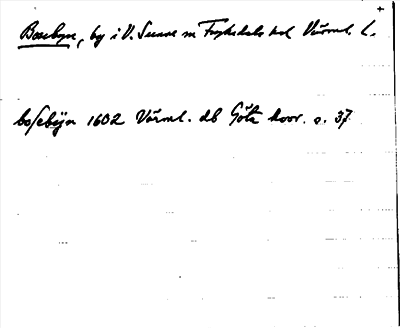 Bosebyn, by i V. Sunne sn Fryksdals hd Värml. l.
bosebÿn 1602 Värml. db Göta hovr. s. 37